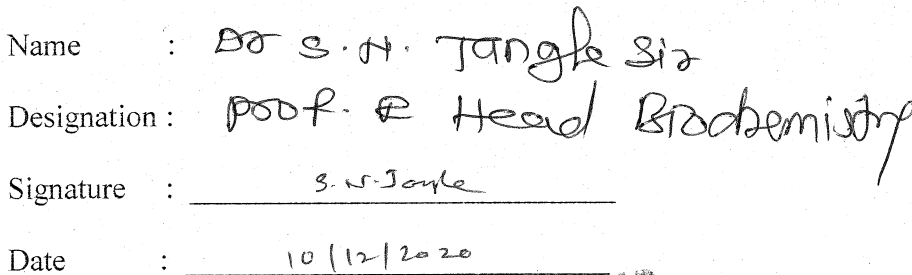 Name : Dr S. N. Tangle Sir
Designation : Prof. & Head Biochemistry
Signature : S. N. Jangle
Date : 10/12/2020